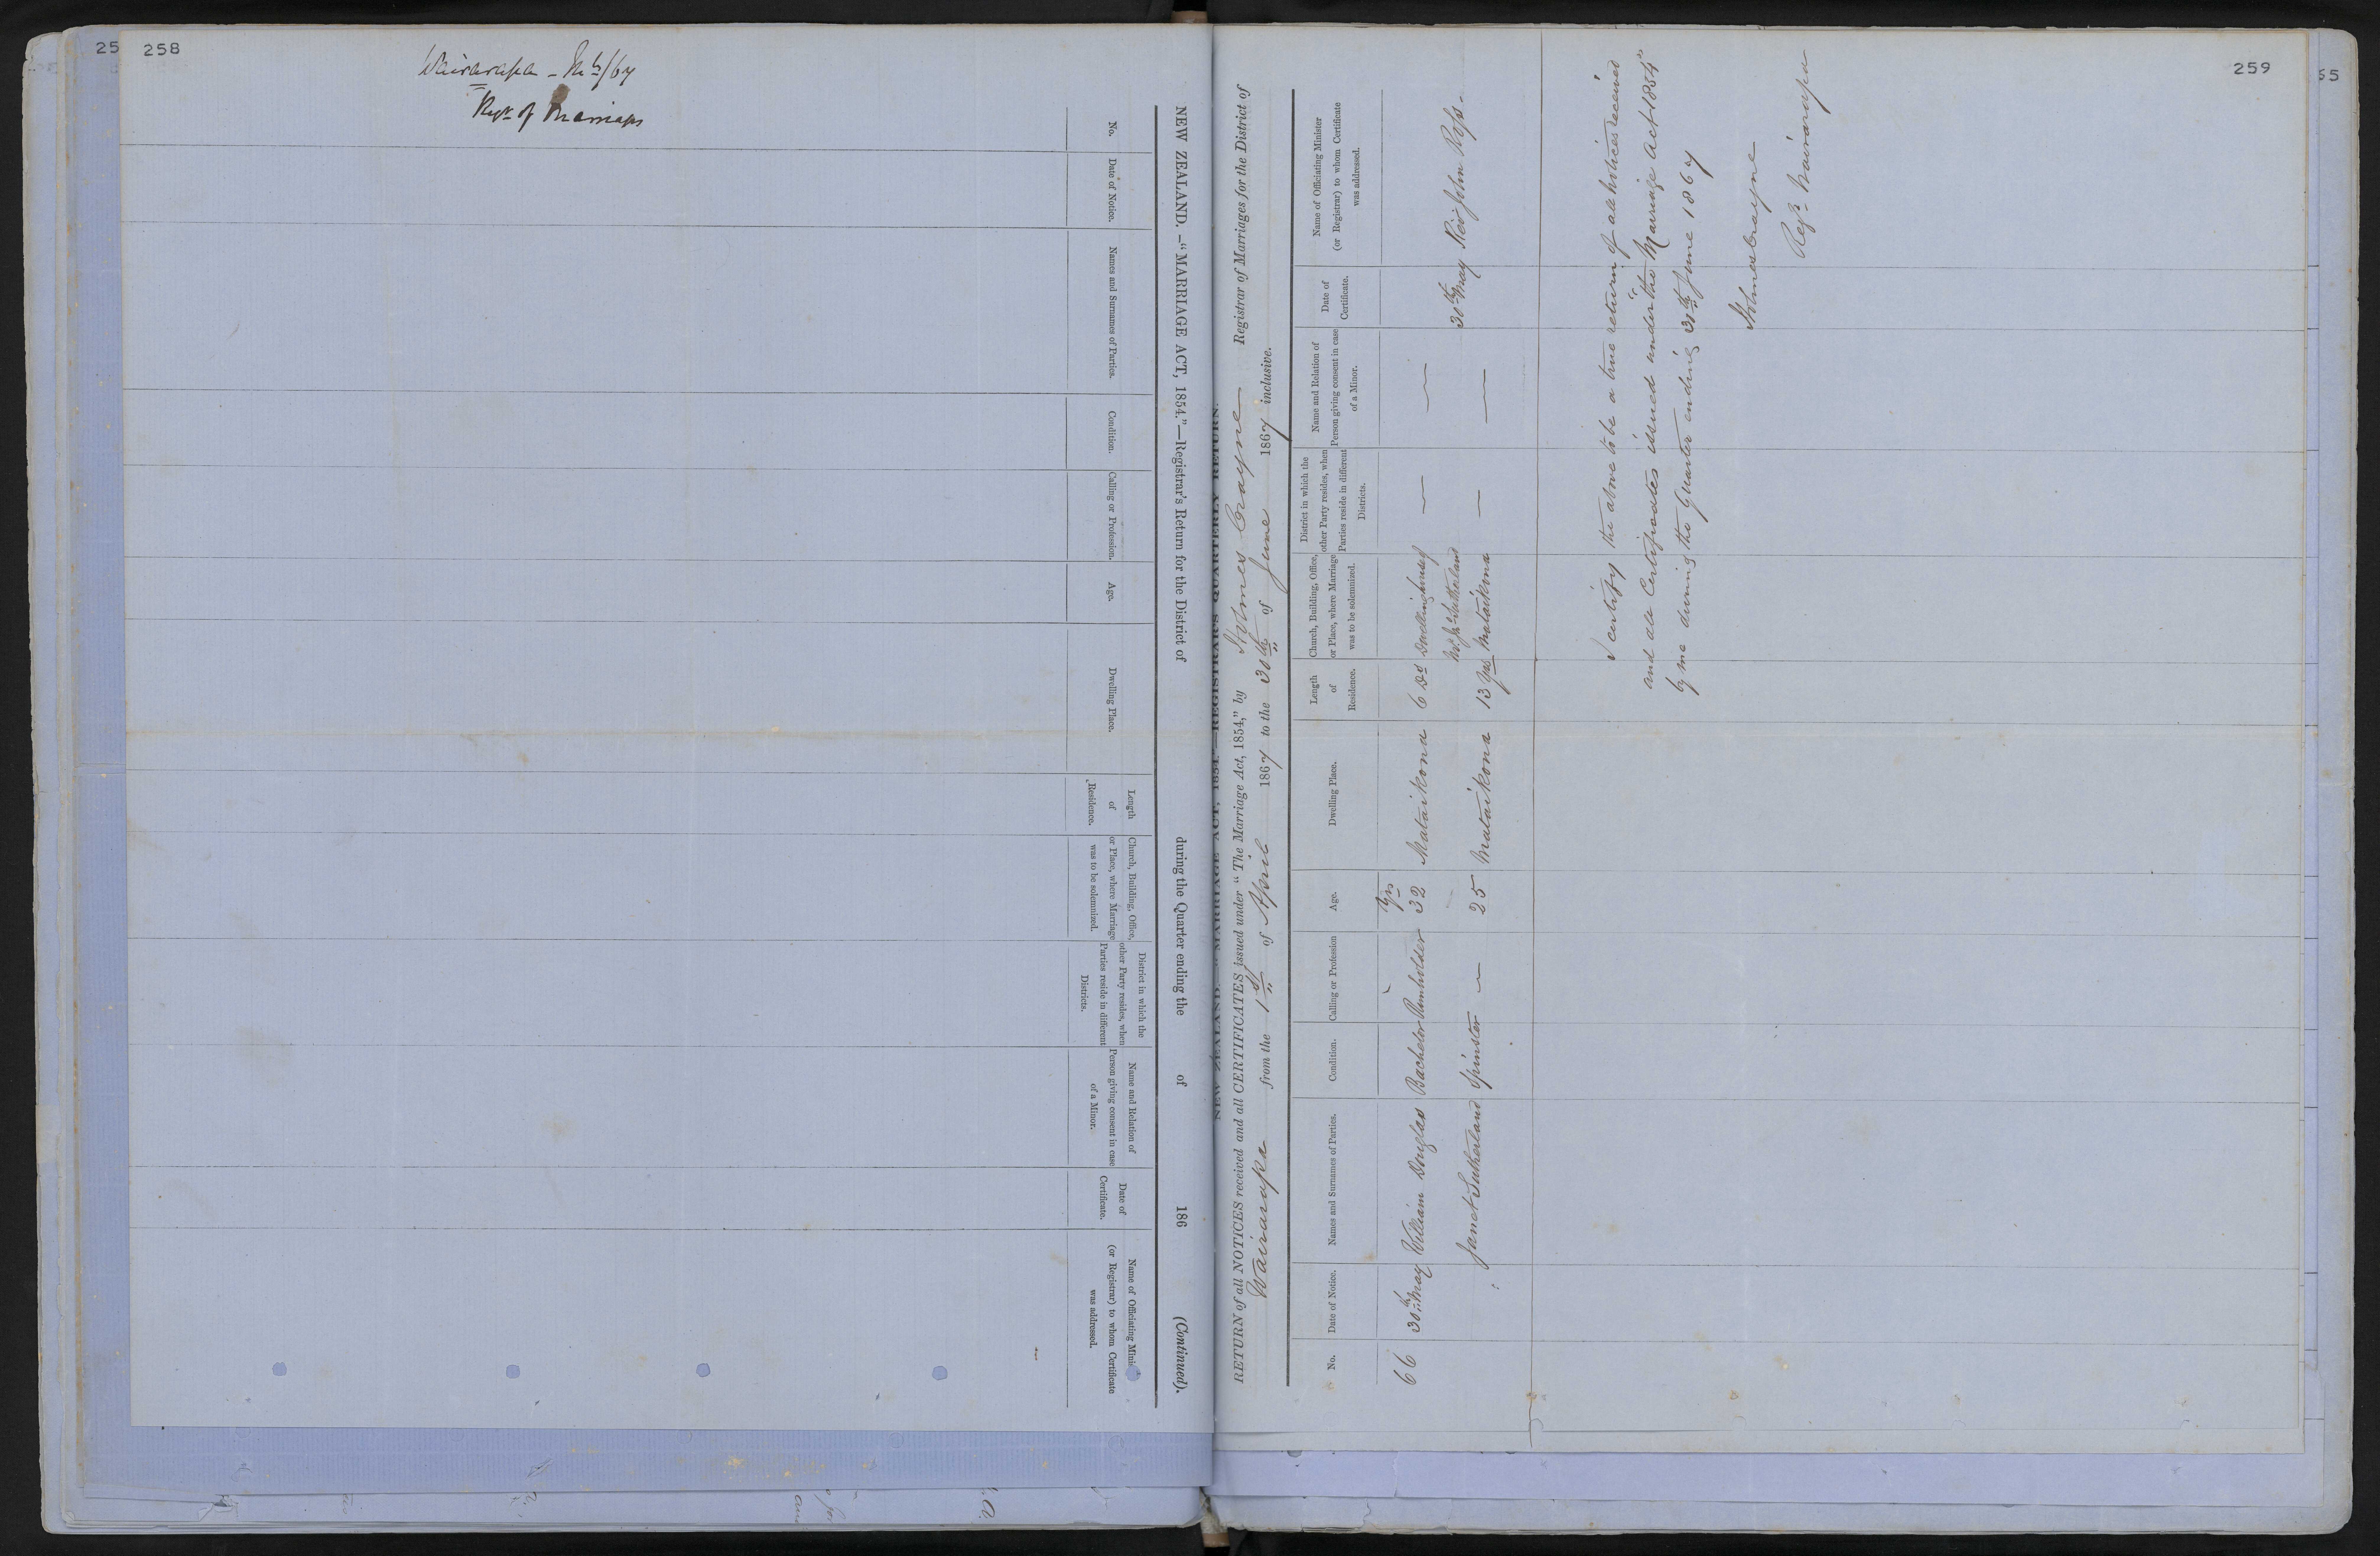 258
Wairarapa – /67
of Marriages
NEW ZEALAND.—"MARRIAGE ACT, 1854."—Registrar's Return for the District of during the Quarter ending the of 186 (Continued).
No.
Date of Notice.
Names and Surnames of Parties.
Condition.
Calling or Profession.
Age.
Dwelling Place.
Length
of
Residence.
Church, Building, Office,
or Place, where Marriage
was to be solemnized.
District in which the
other Party resides, when
Parties reside in different
Districts.
Name and Relation of
Person giving consent in case
of a Minor.
Date of
Certificate.
Name of Officiating Minis
(or Registrar) to whom Certificate
was addressed.
259
NEW ZEALAND.—"MARRIAGE ACT, 1854."—REGISTRAR'S QUARTERLY RETURN.
RETURN of all NOTICES received and all CERTIFICATES issued under "The Marriage Act, 1854," by Holmes Crayne Registrar of Marriages for the District of
Wairarapa from the 1st of April 1867 to the 30th of June 1867 inclusive.
No.
Date of Notice.
Names and Surnames of Parties.
Condition.
Calling or Profession
Age.
Dwelling Place.
Length
of
Residence.
Church, Building, Office,
or Place, where Marriage
was to be solemnized.
District in which the
other Party resides, when
Parties reside in different
Districts.
Name and Relation of
Person giving consent in case
of a Minor.
Date of
Certificate.
Name of Officiating Minister
(or Registrar) to whom Certificate
was addressed.
66 30th May William Douglas Bachelor Runholder 32 Yrs Mataikona 6 Ds Dwellinghouse of — —
Sutherland 30th May Rev John Ross -
Janet Sutherland Spinster — 25 Mataikona 13 Yrs Mataikona — —
I certify the above to be a true return of all notices received
and all Certificates issued under the "Marriage Act 1854"
by me during the Quarter ending 30th June 1867
Holmes Crayne
Regr. Wairarapa